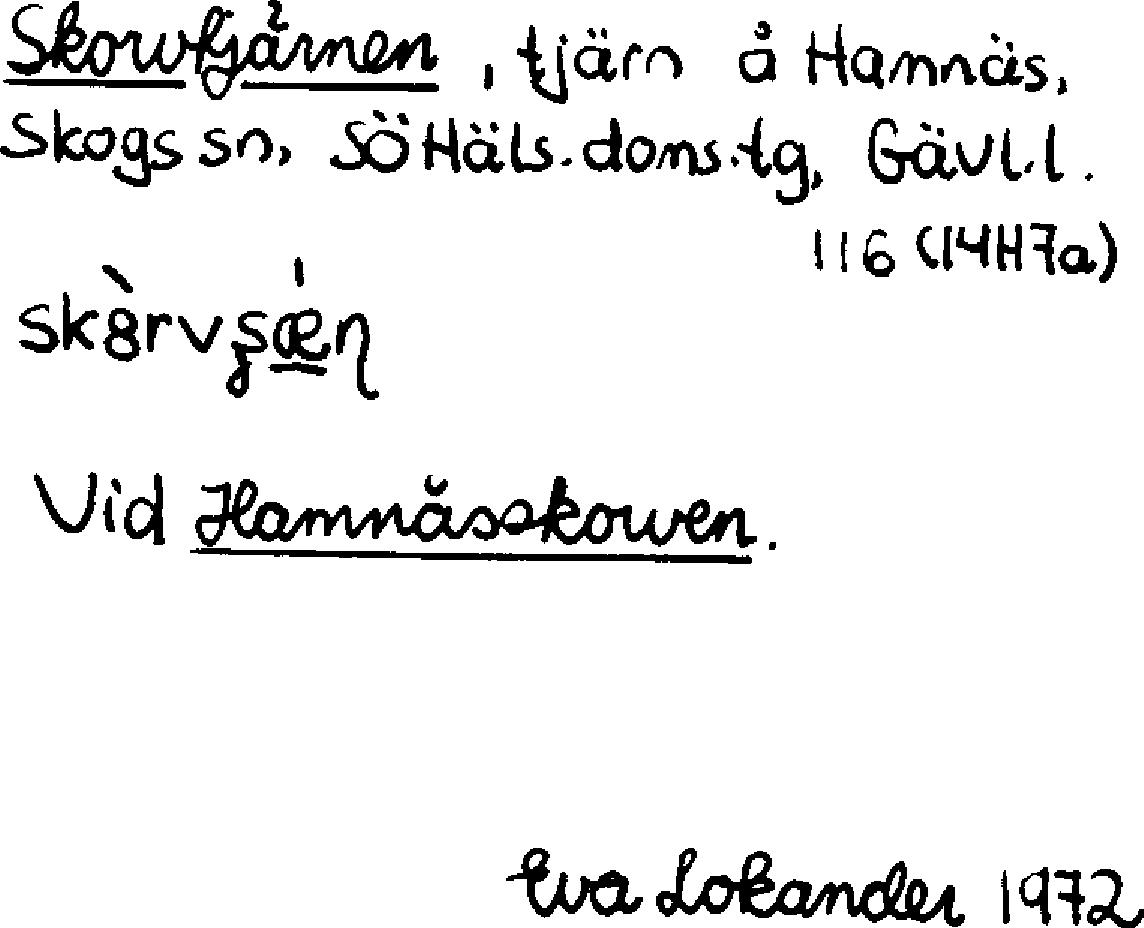 Skorvtjärnen, tjärn å Hamnäs,
Skogs sn, SöHäls. doms.tg, Gävl.l.
116 (14H7a)
Vid Hamnässkorven.
Eva Lokander 1972